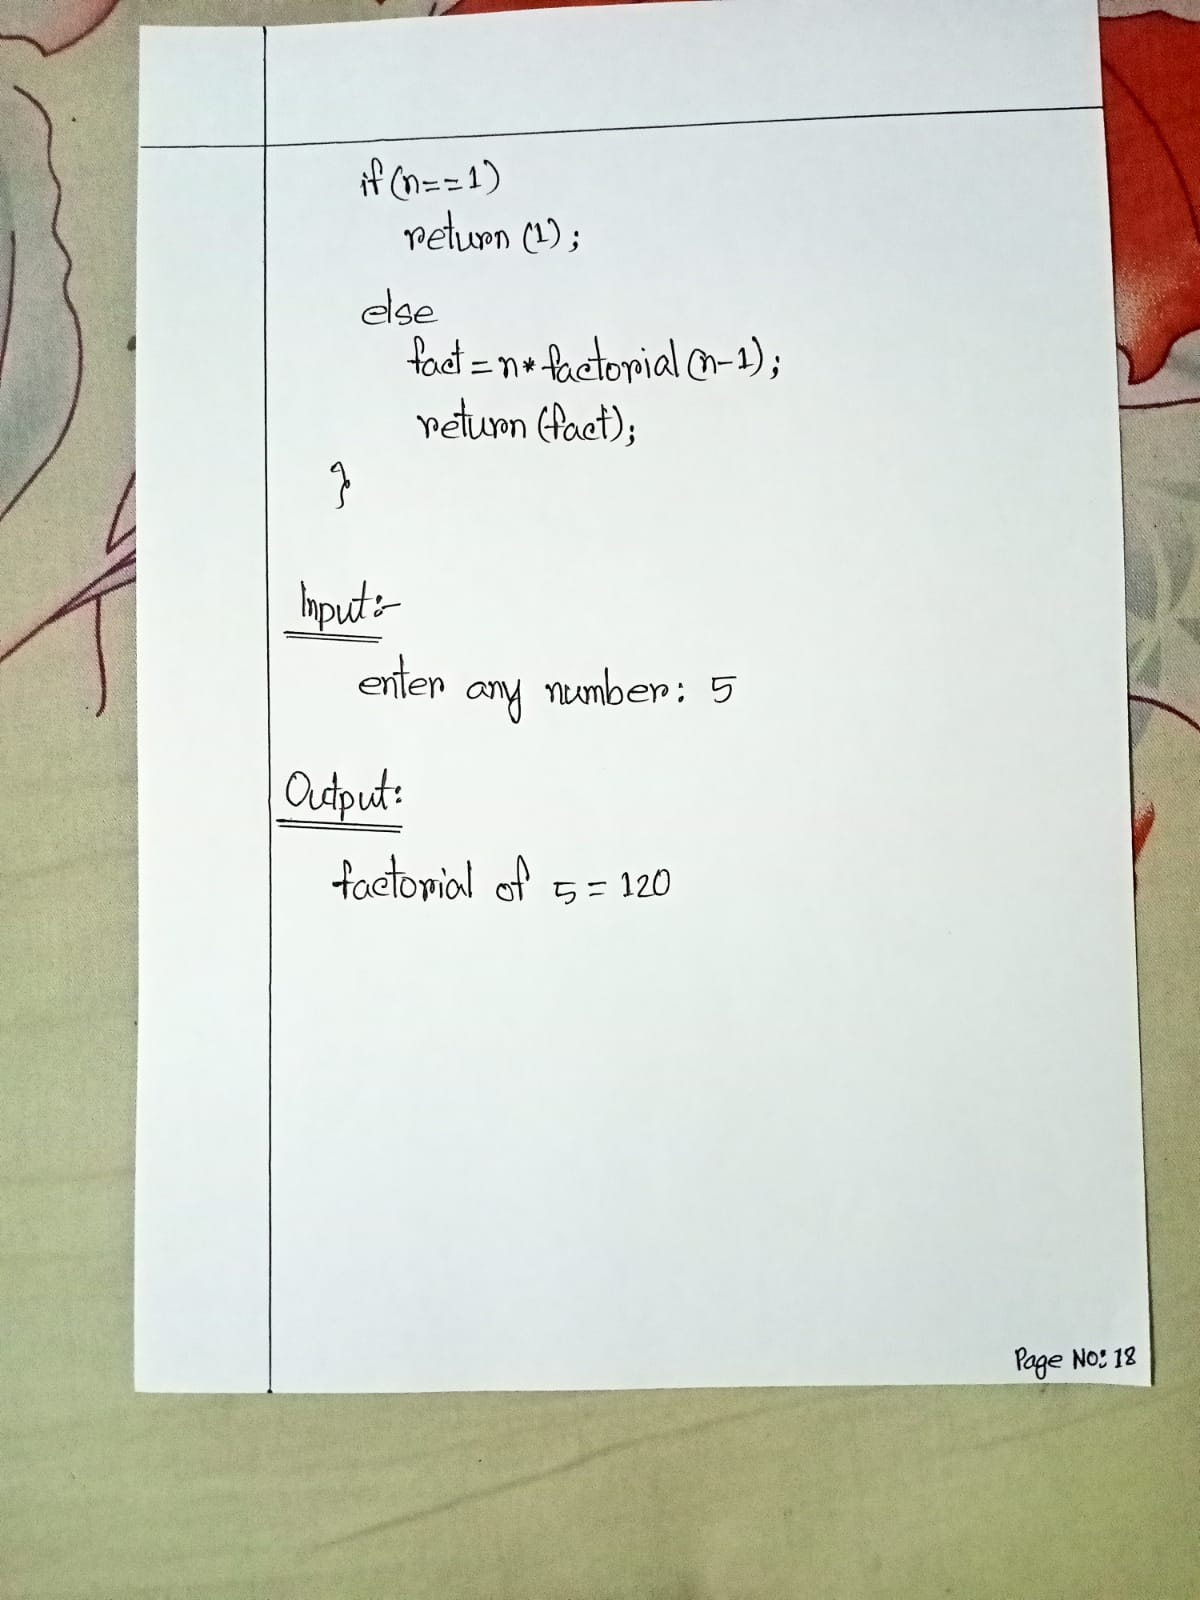 if (n==1)
return (1);
else
fact = n* factorial (n-1);
return (fact);
}
Input:-
enter any number: 5
Output:
factorial of 5 = 120
Page No: 18